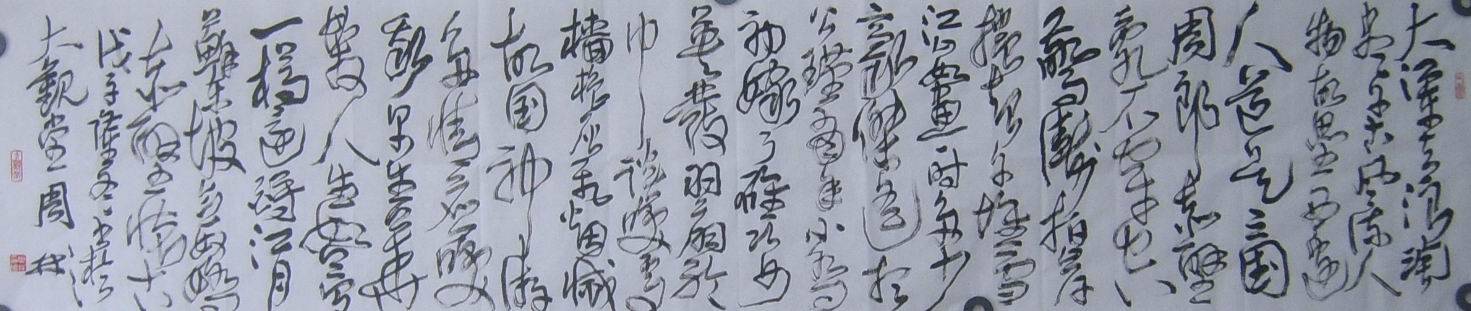 大江東去浪淘
盡千古風流人
物故壘西邊
人道是三国
周郎赤壁
亂石穿空
驚濤拍岸
捲起千堆雪
江山如畫一时多少
豪傑遥想
公瑾當年小喬
初嫁了雄姿
英發羽扇綸
巾談笑間
檣櫓灰飛烟滅
故国神遊
多情应笑
我早生華
髮人生如夢
一樽還酹江月
蘇東坡念奴嬌
赤壁懷古
戊子
大觀堂周林